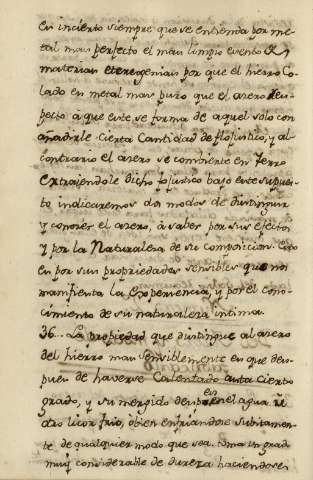 en incierto siempre que se entienda por me-
tal mas perfecto el mas limpio exento
materias eterogenias por que el hierro Co-
lado en metal mas puro que el azero Res-
pecto á que este se forma de aquel solo con
añadirle Cierta Cantidad de flojistico, y al
contrario el azero se convierte en ferro
extrajendole dicho flojistico bajo este supues-
to indicaremos dos modos de distinguir
y conocer el azero, á saber por sus efectos
y por la Naturaleza de su composicion. Esto
en por sus propriedades sensibles que nos
manifiesta la Experiencia, y por el cono-
cimiento de su naturaleza intima
36... La propiedad que distingue al azero
del hierro mas sensiblemente es que des-
pues de haverse Calentado asta cierto
grado, y sumergido despues en el agua
otro licor frio, óbien enfriandose subitamen-
te de qualquier modo que sea. toma un grado
muy considerable de dureza haciendose en